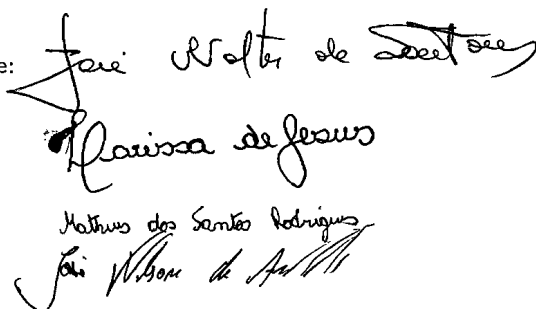 e: José Walter de Santores
Marissa de Jesus
Matheus dos Santos Rodrigues
José Wilson de